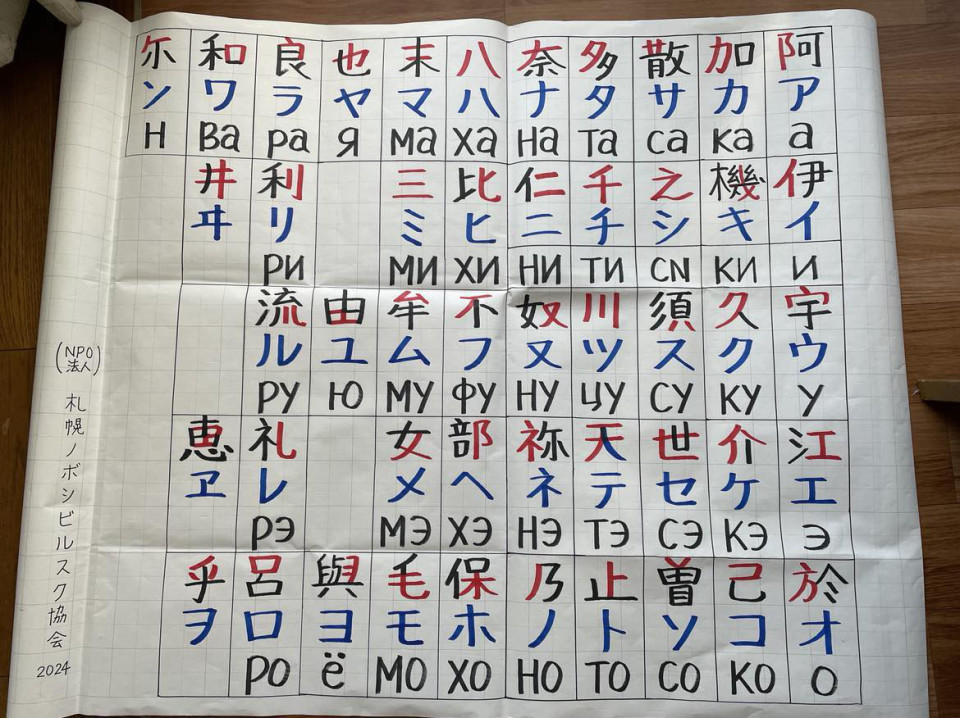 尓 和 良 也 末 八 奈 多 散 加 阿
ン ワ ラ ヤ マ ハ ナ タ サ カ ア
Н Ва ра я ма ха на та са ка а
井 利 三 比 仁 千 之 機 伊
ヰ リ ミ ヒ ニ チ シ キ イ
РИ МИ ХИ НИ ТИ СN КИ И
流 由 牟 不 奴 川 須 久 宇
ル ユ ム フ ヌ ツ ス ク ウ
РУ Ю МУ ФУ НУ ЦУ СУ КУ У
恵 礼 女 部 祢 天 世 介 江
ヱ レ メ ヘ ネ テ セ ケ エ
РЭ МЭ ХЭ НЭ ТЭ СЭ КЭ Э
乎 呂 與 毛 保 乃 止 曽 己 於
ヲ ロ ヨ モ ホ ノ ト ソ コ オ
РО ё МО ХО НО ТО СО КО О
(NPO
法人)
札幌ノボシビルスク協会
2024